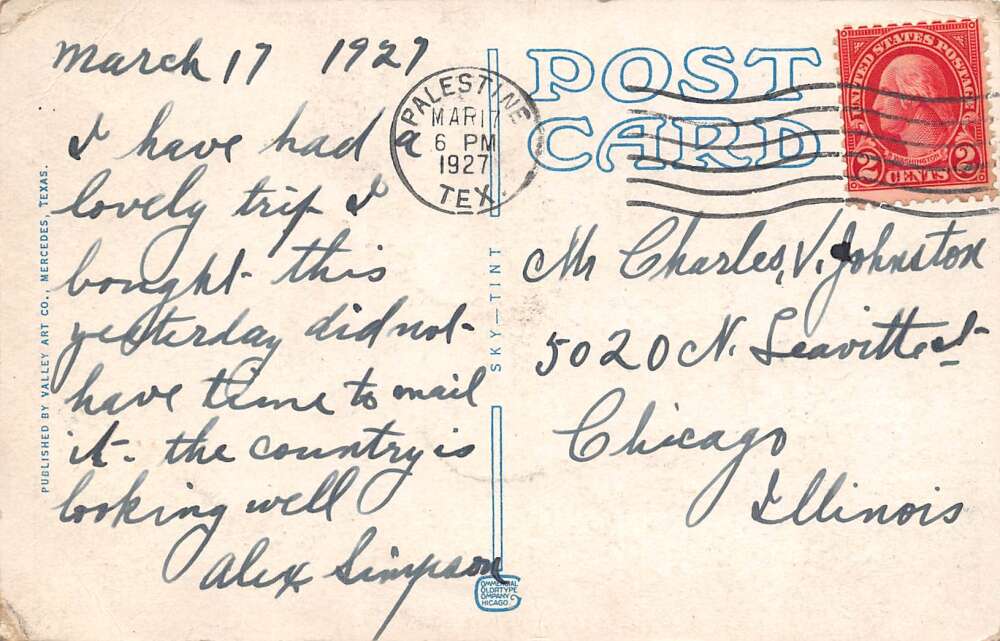 March 17 1927
I have had a
lovely trip I
bought this
yesterday did not
have time to mail
it - the country is
looking well
Alex Simpson
PUBLISHED BY VALLEY ART CO., MERCEDES, TEXAS.
SKY-TINT
COMMERCIAL
COLORTYPE
COMPANY
CHICAGO
POST
CARD
PALESTINE
MAR 17
6 PM
1927
TEX.
UNITED STATES POSTAGE
WASHINGTON
2 CENTS 2
Mr Charles, V. Johnston
5020 N. Leavitt St
Chicago
Illinois